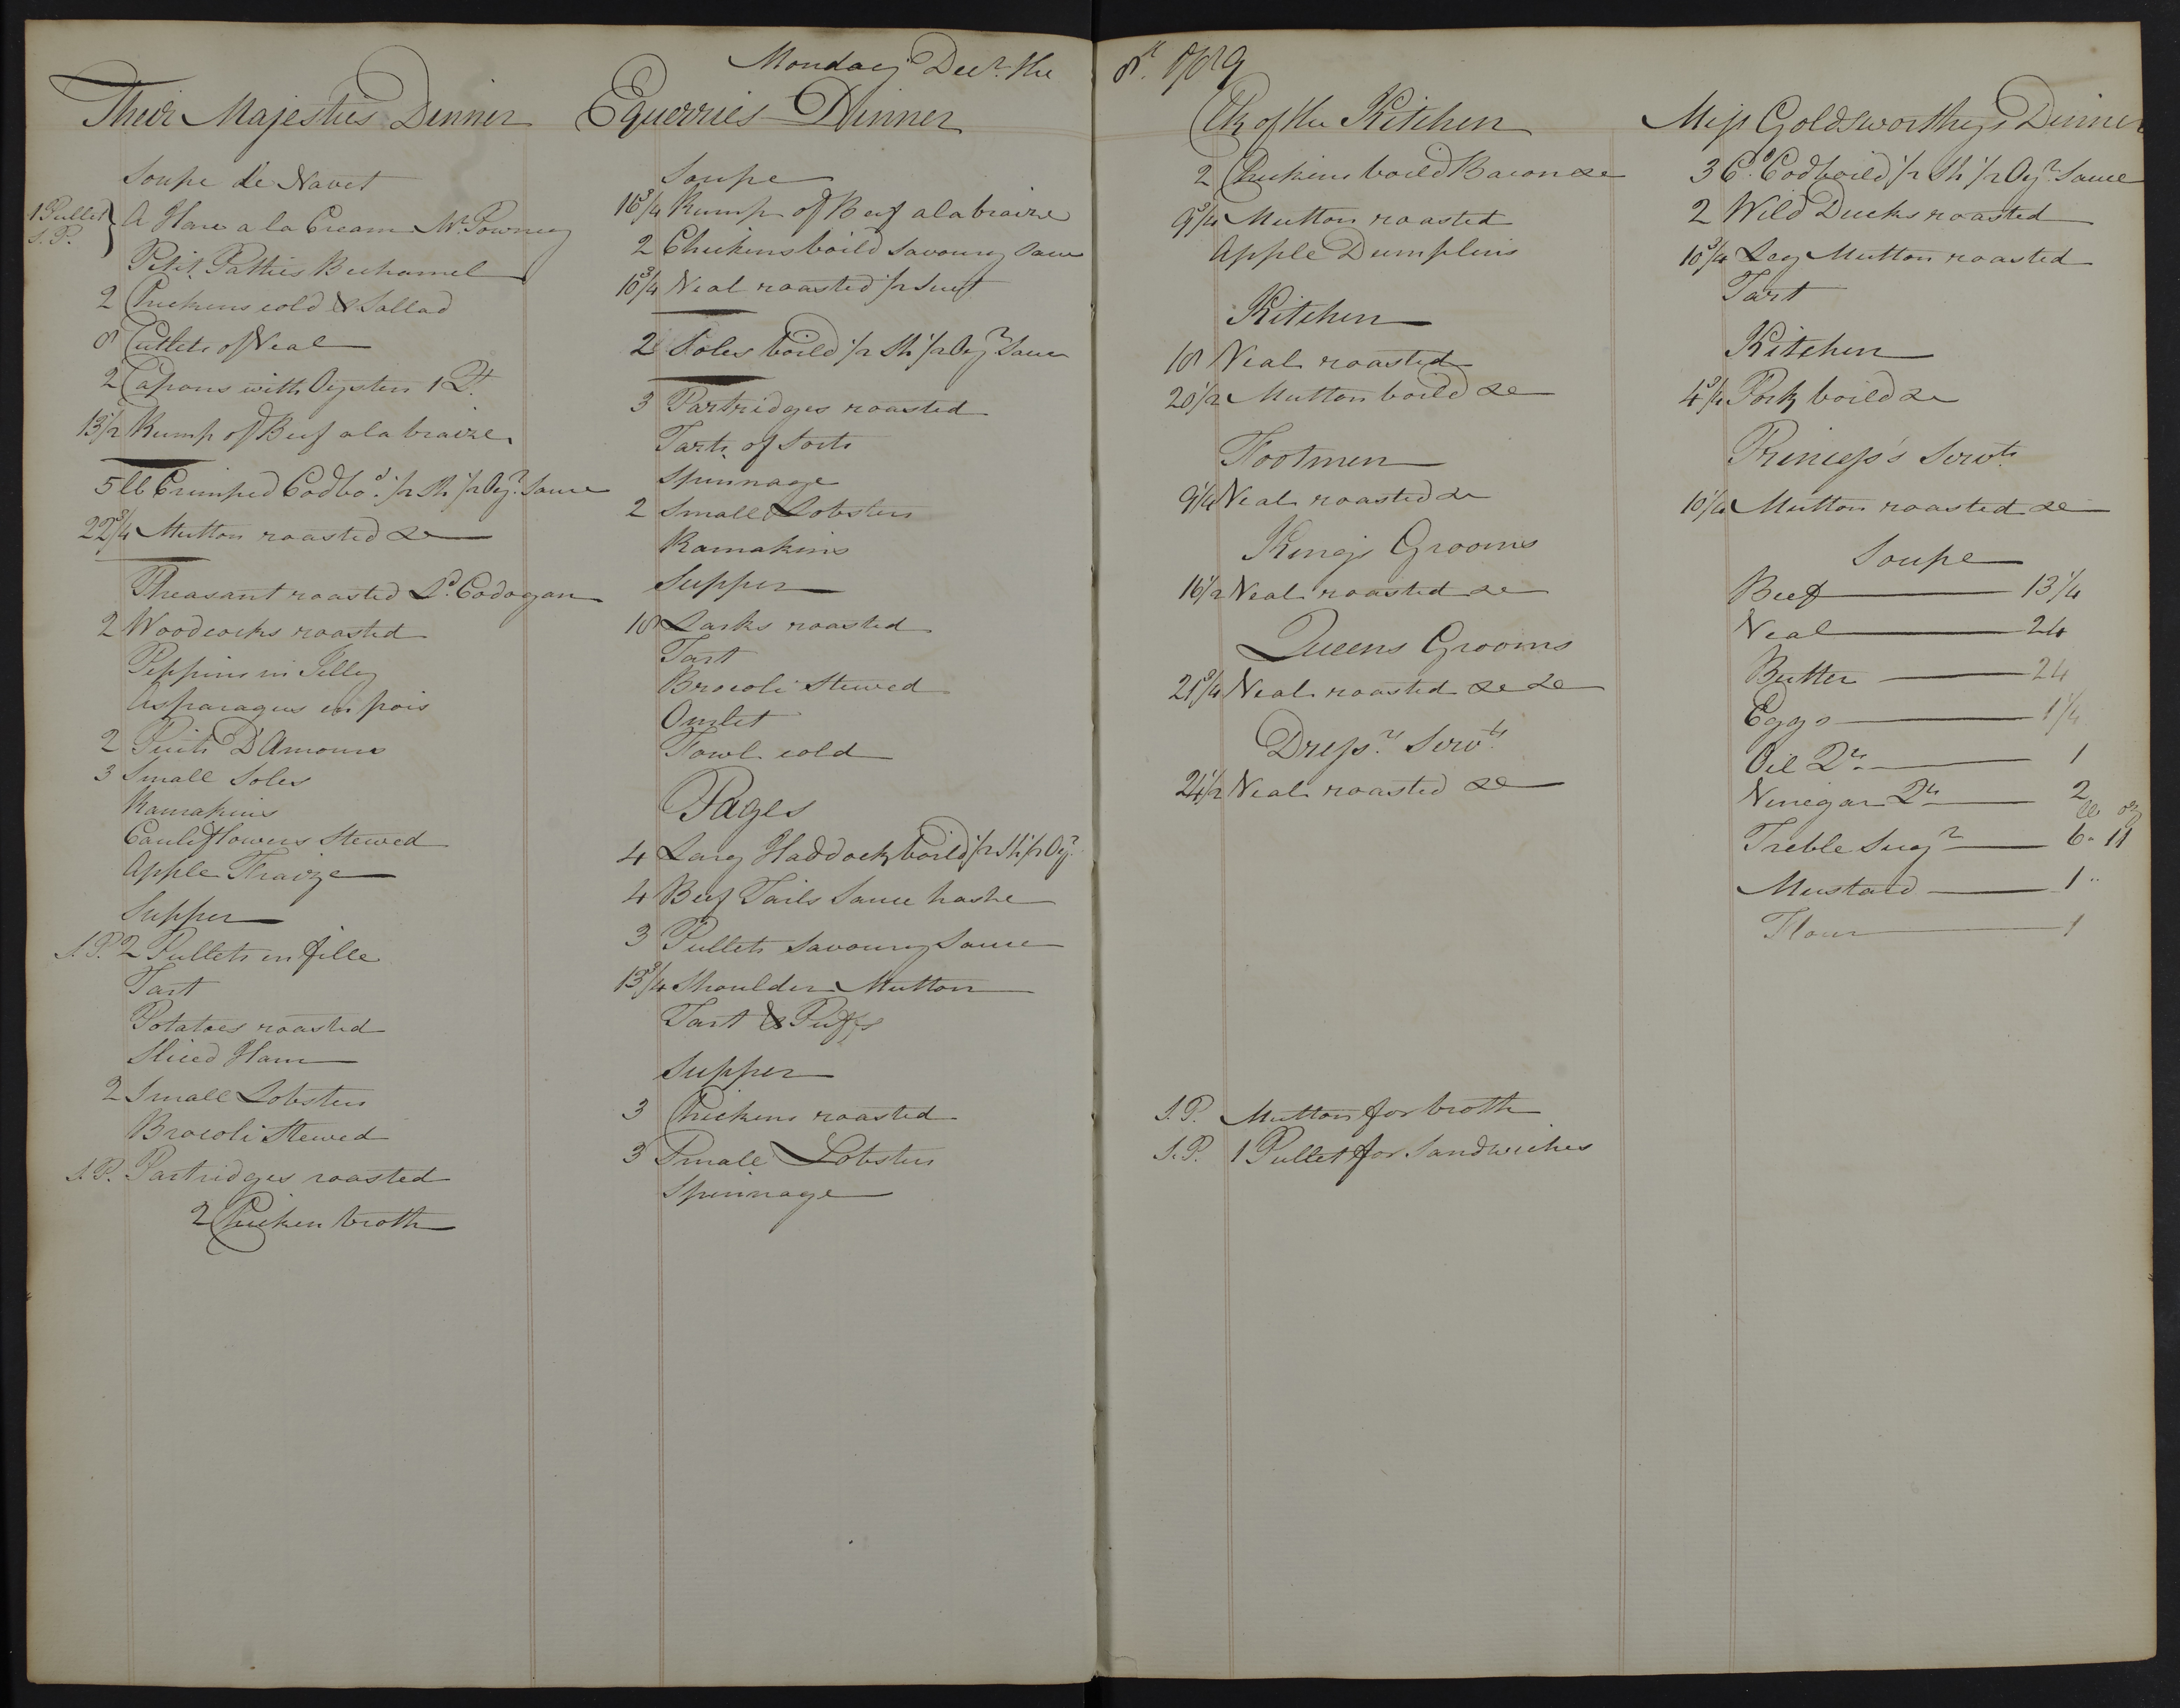 Monday Decr. the 8th. 1789
Their Majesties Dinner
Soupe de Navet
1 Pullet S.P. } A Hare a la Cream Mr. Powney
Petit Patties Bechamel
2 Chickens cold & Sallad
8 Cutlets of Veal
2 Capons with Oysters 1 Qt.
13 1/2 Rump of Beef a la braize
5 lb Crimped Cod bod. 1/2 Sh 1/2 Oyr. Sauce
22 3/4 Mutton roasted &c
Pheasant roasted Ld. Cadogan
2 Woodcocks roasted
Peppins in Jelly
Asparagus en pois
2 Puits D'Amours
3 Small Soles
Ramakins
Cauliflowers Stewed
Apple Fraize
Supper
S.P. 2 Pullets en fille
Tart
Potatoes roasted
Sliced Ham
2 Small Lobsters
Brocoli Stewed
S.P. Partridges roasted
2 Chicken broth
Equerries Dinner
Soupe
16 3/4 Rump of Beef a la braize
2 Chickens boild Savoury Sauce
10 3/4 Veal roasted 1/2 Suet
2 Soles boild 1/2 Sh 1/2 Oyr. Sauce
3 Partridges roasted
Tarts of Sorts
Spinnage
2 Small Lobsters
Ramakins
Supper
18 Larks roasted
Tart
Brocoli Stewed
Omlet
Fowl cold
Pages
4 Larg Haddock boild 1/2 Sh 1/2 Oyr.
4 Beef Tails Sauce hashe
3 Pullets Savoury Sauce
13 3/4 Shoulder Mutton
Tart & Puffs
Supper
3 Chickens roasted
3 Small Lobsters
Spinnage
Clk of the Kitchen
2 Chickens boild Bacon &c
9 3/4 Mutton roasted
Apple Dumplins
Kitchen
18 Veal roasted
20 1/2 Mutton boild &c
Footmen
9 1/4 Veal roasted &c
Kings Grooms
16 1/2 Veal roasted &c
Queens Grooms
21 3/4 Veal roasted &c &c
Dressrs. Servts.
24 1/2 Veal roasted &c
S.P. Mutton for broth
S.P. 1 Pullet for Sandwiches
Miss Goldsworthys Dinner
3 lb. Cod boild 1/2 Sh 1/2 Oyr. Sauce
2 Wild Ducks roasted
10 3/4 Leg Mutton roasted
Tart
Kitchen
4 3/4 Pork boild &c
Princess's Servts.
10 1/4 Mutton roasted &c
Soupe
Beef 13 1/4
Veal 24
Butter 24
Eggs 1 1/4
Oil Qts. 1
Vinegar Qts. 2
lb oz
Treble Sugr. 6 11
Mustard 1
Flour 1